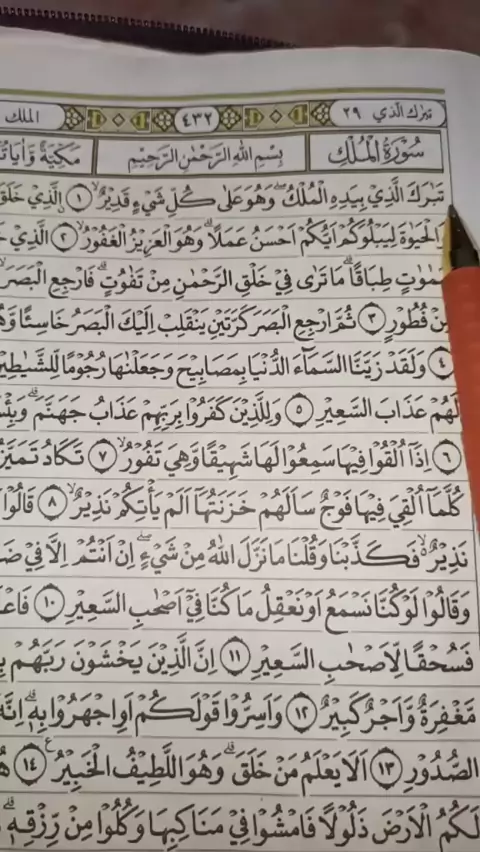 تبرك الذي ٢٩ ٤٣٢ الملك
سُوْرَةُ الْمُلْكِ بِسْمِ اللهِ الرَّحْمٰنِ الرَّحِيْمِ مَكِّيَّةٌ وَّاٰيَاتُ
تَبٰرَكَ الَّذِيْ بِيَدِهِ الْمُلْكُۖ وَهُوَ عَلٰى كُلِّ شَيْءٍ قَدِيْرٌۙ ١ الَّذِيْ خَلَقَ
وَالْحَيٰوةَ لِيَبْلُوَكُمْ اَيُّكُمْ اَحْسَنُ عَمَلًاۗ وَهُوَ الْعَزِيْزُ الْغَفُوْرُۙ ٢ الَّذِيْ
سَمٰوٰتٍ طِبَاقًاۗ مَا تَرٰى فِيْ خَلْقِ الرَّحْمٰنِ مِنْ تَفٰوُتٍۗ فَارْجِعِ الْبَصَرَۙ
مِنْ فُطُوْرٍ ٣ ثُمَّ ارْجِعِ الْبَصَرَ كَرَّتَيْنِ يَنْقَلِبْ اِلَيْكَ الْبَصَرُ خَاسِئًا وَّهُ
٤ وَلَقَدْ زَيَّنَّا السَّمَاۤءَ الدُّنْيَا بِمَصَابِيْحَ وَجَعَلْنٰهَا رُجُوْمًا لِّلشَّيٰطِيْنِ
لَهُمْ عَذَابَ السَّعِيْرِ ٥ وَلِلَّذِيْنَ كَفَرُوْا بِرَبِّهِمْ عَذَابُ جَهَنَّمَۗ وَبِئْسَ
٦ اِذَآ اُلْقُوْا فِيْهَا سَمِعُوْا لَهَا شَهِيْقًا وَّهِيَ تَفُوْرُۙ ٧ تَكَادُ تَمَيَّزُ
كُلَّمَآ اُلْقِيَ فِيْهَا فَوْجٌ سَاَلَهُمْ خَزَنَتُهَآ اَلَمْ يَأْتِكُمْ نَذِيْرٌۙ ٨ قَالُوْا
نَذِيْرٌ ەۙ فَكَذَّبْنَا وَقُلْنَا مَا نَزَّلَ اللهُ مِنْ شَيْءٍۖ اِنْ اَنْتُمْ اِلَّا فِيْ
وَقَالُوْا لَوْ كُنَّا نَسْمَعُ اَوْ نَعْقِلُ مَا كُنَّا فِيْٓ اَصْحٰبِ السَّعِيْرِ ١٠
فَسُحْقًا لِّاَصْحٰبِ السَّعِيْرِ ١١ اِنَّ الَّذِيْنَ يَخْشَوْنَ رَبَّهُمْ
مَّغْفِرَةٌ وَّاَجْرٌ كَبِيْرٌ ١٢ وَاَسِرُّوْا قَوْلَكُمْ اَوِ اجْهَرُوْا بِهٖۗ اِنَّهٗ
الصُّدُوْرِ ١٣ اَلَا يَعْلَمُ مَنْ خَلَقَۗ وَهُوَ اللَّطِيْفُ الْخَبِيْرُ ١٤
لَكُمُ الْاَرْضَ ذَلُوْلًا فَامْشُوْا فِيْ مَنَاكِبِهَا وَكُلُوْا مِنْ رِّزْقِهٖۗ